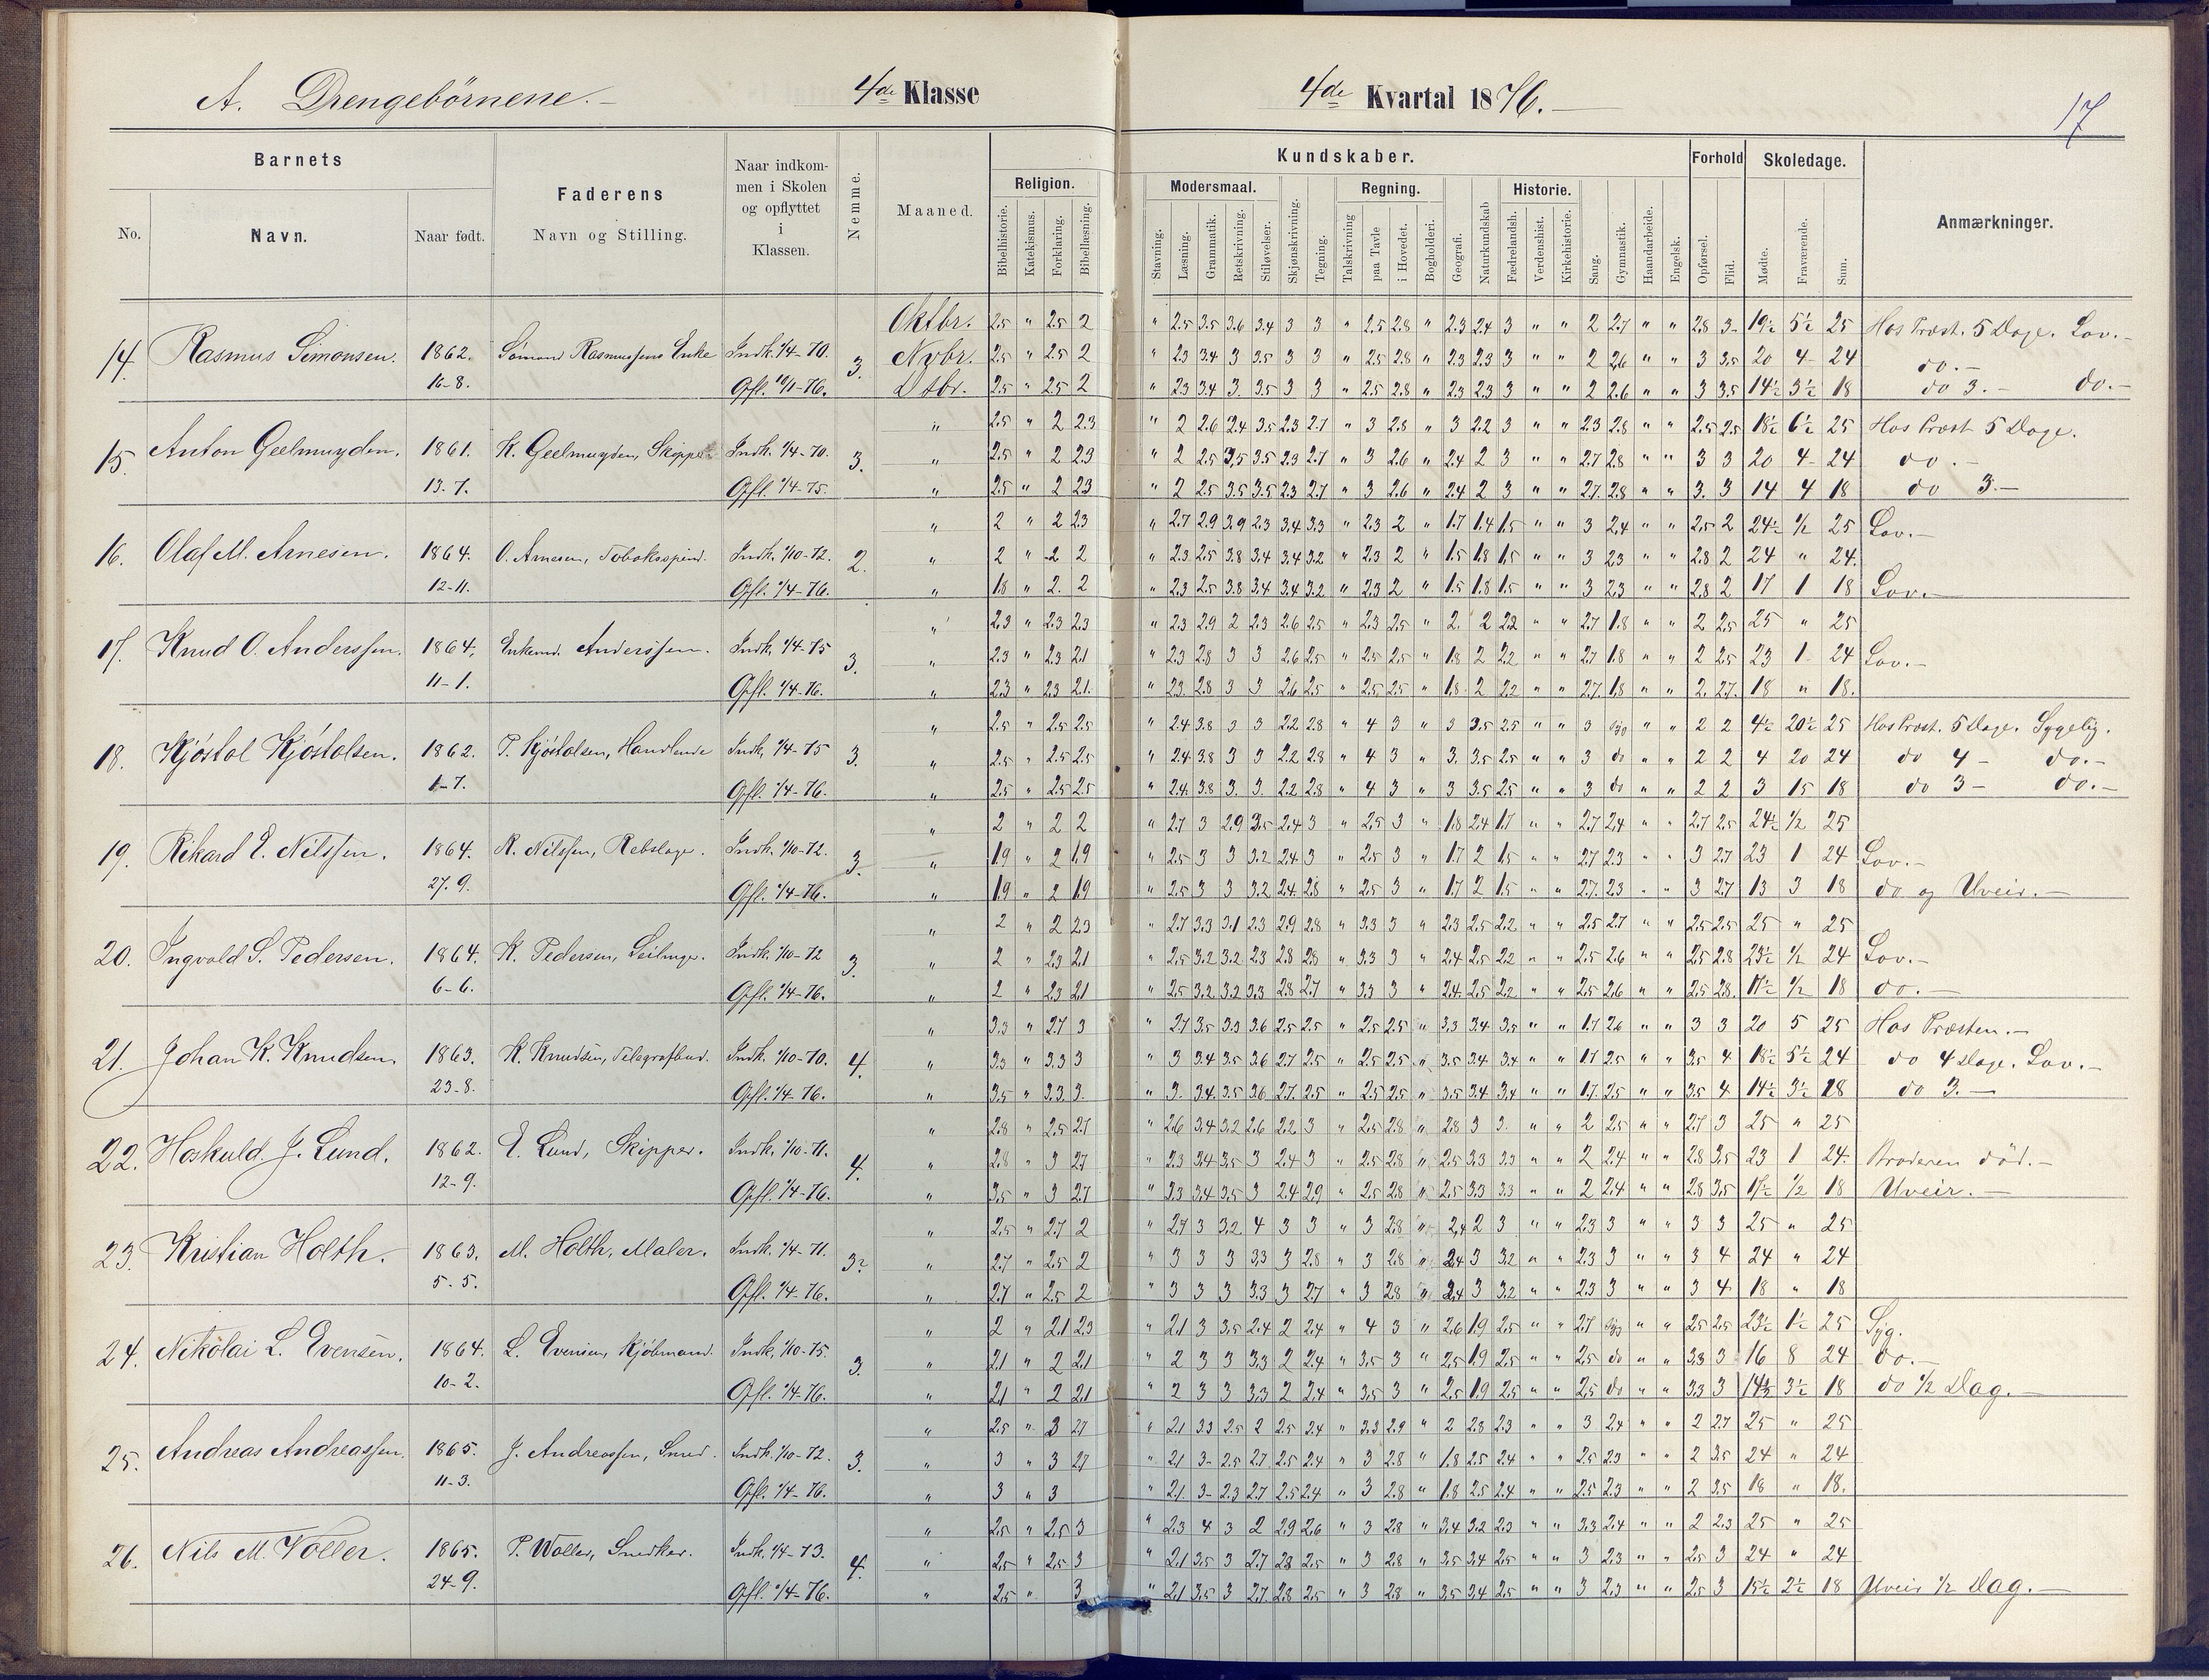 A. Drengebörnene.
4de Klasse
4de Kvartal 1876.
17
Barnets
Faderens
Naar indkommen i Skolen og opflyttet i Klassen.
Nemme.
Maaned.
Religion.
Kundskaber.
Modersmaal.
Regning.
Historie.
Forhold
Skoledage.
Anmærkninger.
No.
Navn.
Naar født.
Navn og Stilling.
Bibelhistorie.
Katekismus.
Forklaring.
Bibellæsning.
Stavning.
Læsning.
Grammatik.
Retskrivning.
Stiløvelser.
Skjønskrivning.
Tegning.
Talskrivning
paa Tavle
i Hovedet.
Bogholderi.
Geografi.
Naturkundskab
Fædrelandsh.
Verdenshist.
Kirkehistorie.
Sang.
Gymnastik.
Haandarbeide.
Engelsk.
Opførsel.
Flid.
Mødte.
Fraværende.
Sum.
Oktbr. 2.5 " 2.5 2 " 2.5 3.5 3.6 3.4 3 3 " 2.5 2.8 " 2.3 2.4 3 " " 2 2.7 " " 2.8 3 19½ 5½ 25 Hos Præst. 5 Dage. Lov.
14. Rasmus Simonsen. 1862. Rasmussens Enke Indk. 1/4-70. 3. Nvbr. 2.5 " 2.5 2 " 2.3 3.4 3 3.5 3 3 " 2.5 2.8 " 2.3 2.3 3 " " 2 2.6 " " 3 3.5 20 4 24 do.
16-8. Opfl. -76. Dsbr. 2.5 " 2.5 2 " 2.3 3.4 3 3.5 3 3 " 2.5 2.8 " 2.3 2.3 3 " " 2 2.6 " " 3 3.5 14½ 3½ 18 do 3. do.
" 2.5 " 2 2.3 " 2 2.6 2.4 3.5 2.3 2.7 " 3 2.8 " 3 2.2 3 " " 2.3 2.8 " " 2.5 2.5 18½ 6½ 25 Hos Præst 5 Dage.
15. Anton Geelmuyden. 1861. K. Geelmuyden, Skipper Indk. 1/4-70. 3. " 2.5 " 2 2.3 " 2 2.5 3.5 3.5 2.3 2.7 " 3 2.6 " 2.4 2 3 " " 2.7 2.8 " " 3 3 20 4 24 do.
13-7. Opfl. 1/4-75. " 2.5 " 2 2.3 " 2 2.5 3.5 3.5 2.3 2.7 " 3 2.6 " 2.4 2 3 " " 2.7 2.8 " " 3 3 14 4 18 do 3.
" 2 " 2 2.3 " 2.7 2.9 3.9 2.3 3.4 3.3 " 2.3 2 " 1.7 1.4 1.5 " " 3 2.4 " " 2.5 2 24½ ½ 25 Lov.
16. Olaf M. Arnesen. 1864. O. Arnesen, Tobaksspind. Indk. 1/10-72. 2. " 2 " 2 2 " 2.3 2.5 3.8 3.4 3.4 3.2 " 2.3 2 " 1.5 1.8 1.5 " " 3 2.3 " " 2.8 2 24 " 24.
12-11. Opfl. 1/4-76. " 1.8 " 2. 2 " 2.3 2.5 3.8 3.4 3.4 3.2 " 2.3 2 " 1.5 1.8 1.5 " " 3 2.3 " " 2.8 2 17 1 18 Lov.
" 2.3 " 2.3 2.3 " 2.3 2.9 2 2.3 2.6 2.5 " 2.3 2.5 " 2. 2 2.2 " " 2.7 1.8 " " 2 2.5 25 " 25
17. Knud O. Anderssen. 1864. Enkemd. Anderssen. Indk. 1/4-75 3. " 2.3 " 2.3 2.1 " 2.3 2.8 3 3 2.6 2.5 " 2.5 2.5 " 1.8 2 2.2 " " 2.7 1.8 " " 2 2.5 23 1 24 Lov.
11-1. Opfl. 1/4-76. " 2.3 " 2.3 2.1. " 2.3 2.8 3 3 2.6 2.5 " 2.5 2.5 " 1.8 2 2.2 " " 2.7 1.8 " " 2. 2.7. 18 " 18.
" 2.5 " 2.5 2.5 " 2.4 3.8 3 3 2.2 2.8 " 4 3 " 3 3.5 2.5 " " 3 syg " " 2 2 4½ 20½ 25 Hos Præst. 5 Dage. Sygelig.
18. Kjöstol Kjöstolsen. 1862. T. Kjöstolsen, Handlende Indk. 1/4-75 3. " 2.5 " 2.5 2.5 " 2.4 3.8 3 3 2.2 2.8 " 4 3 " 3. 3.5 2.5 " " 3 do " " 2 2 4 20 24 do 4 - do.
1-7. Opfl. 1/4-76. " 2.5 " 2.5 2.5 " 2.4 3.8 3. 3. 2.2 2.8 " 4 3 " 3 3.5 2.5 " " 3 do " " 2 2 3 15 18 do 3 - do.
" 2 " 2 2 " 2.7 3 2.9 3.5 2.4 3 " 2.5 3 " 1.8 2.4 1.7 " " 2.7 2.4 " " 2.7 2.5 24½ ½ 25
19. Rikard E. Nilssen. 1864. R. Nilssen, Rebslager. Indk. 1/10-72. 3. " 1.9 " 2 1.9 " 2.5 3 3 3.2 2.4 3 " 2.5 3 " 1.7 2 1.5 " " 2.7 2.3 " " 3 2.7 23 1 24 Lov.
27.9. Opfl. 1/4-76. " 1.9 " 2 1.9 " 2.5 3 3 3.2 2.4 2.8 " 2.5 3 " 1.7 2 1.5 " " 2.7 2.3 " " 3 2.7 13 3 18 do og Uveir.
" 2 " 2 2.3 " 2.7 3.3 3.1 2.3 2.9 2.8 " 3.3 3 " 2.3 2.5 2.2 " " 2.5 2.7 " " 2.5 2.5 25 " 25
20. Ingvald S. Pedersen. 1864. K. Pedersen, Indk. 1/10-72 3. " 2 " 2.3 2.1 " 2.5 3.2 3.2 2.3 2.8 2.8 " 3.3 3 " 2.4 2.5 2.2 " " 2.5 2.6 " " 2.5 2.8 23½ ½ 24 Lov.
6-6. Opfl. 1/4-76. " 2 " 2.3 2.1 " 2.5 3.2 3.2 3.3 2.8 2.7 " 3.3 3 " 2.4 2.5 2.2 " " 2.5 2.6 " " 2.5 2.8. 17½ ½ 18 do.
" 3.3 " 2.7 3 " 2.7 3.5 3.3 3.6 2.5 2.5 " 2.5 2.5 " 3.3 3.4 3.5 " " 1.7 2.6 " " 3 3 20 5 25 Hos Præsten.
21. Johan K. Knudsen. 1863. K. Knudsen, Telegrafbud. Indk. 1/10-70. 4. " 3.3 " 3.3 3 " 3 3.4 3.5 3.6 2.7 2.5 " 2.5 2.5 " 3.5 3.4 3.4 " " 1.7 2.5 " " 3.5 4 18½ 5½ 24 do 4 Dage. Lov.
23-8. Opfl. 1/4-76. " 3.5 " 3.3. 3. " 3. 3.4. 3.5 3.6 2.7 2.5 " 2.5 2.5 " 3.5 3.4 3.4 " " 1.7 2.5 " " 3.5 4 14½ 3½ 18 do 3.
" 2.8 " 2.5 2.7 " 2.6 3.4 3.2 2.6 2.2 3 " 2.5 2.8 " 2.8 3 3. " " 2 2.5 " " 2.7 3 25 " 25
22. Hoskuld J. Lund. 1862. E. Lund, Skipper. Indk. 1/10-71. 4. " 2.8 " 3 2.7 " 2.3 3.4 3.5 3 2.4 3 " 2.5 2.8 " 2.5 3.3 3.3 " " 2 2.4 " " 2.8 3.5 23 1 24. Broderen död.
12-9. Opfl. 1/4-76. " 3.5 " 3 2.7 " 3.3 3.4 3.5 3 2.4 2.9 " 2.5 2.8 " 2.5 3.3 3.3 " " 2 2.4 " " 2.8 3.5 17½ ½ 18 Uveir.
" 2.5 " 2.7 2 " 2.7 3 3.2 4 3 3 " 3 2.8 " 2.4 2 3 " " 2.3 3 " " 3 3 25 " 25
23. Kristian Holth. 1863. M. Holth, Maler. Indk. 1/4-71. " 2.7 " 2.5 2 " 3 3 3 3.3 3 2.8 " 3 2.8 " 2.4 3 3.2 " " 2.3 3 " " 3 4 24 " 24
5-5. Opfl. 1/4-76. " 2.7 " 2.5 2 " 3 3 3 3.3 3 2.7 " 3 2.8 " 2.4 3 3.2 " " 2.3 3 " " 3 4 18 " 18
" 2 " 2.1 2.3 " 2.1 3 3.5 2.4 2 2.4 " 4 3 " 2.6 1.9 2.5 " " 2.7 syg " " 2.5 2.5 23½ 1½ 25 Syg.
24. Nikolai L. Evensen. 1864. L. Evensen, Kjöbmand. Indk. 1/10-75. 3. " 2.1 " 2 2.1 " 2 3 3 3.3 2 2.4 " 3.5 3 " 2.5 1.9 2.5 " " 2.5 do " " 3.3 3 16 8 24 do.
10-2. Opfl. 1/4-76. " 2.1 " 2 2.1 " 2 3 3 3.3 2 2.4 " 3.5 3 " 2.5 1.9 2.5 " " 2.5 do " " 3.3 3 14½ 3½ 18 do ½ Dag.
" 2.5 " 3 2.7 " 2.1 3.3 2.5 2 2.5 2.4 " 3.3 2.9 " 2 2.8 2.3 " " 3 2.4 " " 2 2.7 25 " 25
25. Andreas Andreassen. 1865. J. Andreassen, Smed. Indk. 1/10-72. 3. " 3 " 3 2.7 " 2.1 3 2.5 2.7 2.5 2.4 " 3 2.8 " 1.8 2.5 2.4 " " 2.5 2.3 " " 2 3.5 24 " 24
11-3. Opfl. 1/4-76. " 3 " 3 " 2.1 3 2.3 2.7 2.5 2.4 " 3 2.8 " 1.8 2.5 2.4 " " 2.5 2.3 " " 2 3.5 18 " 18.
" 2.5 " 2.5 3 " 2.3 4 3 2 2.9 2.6 " 3 2.8 " 3.4 3.2 2.3 " " 3.3 2.4 " " 2 2.3 25 " 25
26. Nils M. Woller. 1865. P. Woller, Snedker. Indk. 1/4-73. 4. " 2.5 " 2.5 3 " 2.1 3.5 3 2.7 2.8 2.5 " 3 2.8 " 3.5 3.4 2.5 " " 3 2.3 " " 2.5 3 24 " 24
24-9. Opfl. 1/4-76. " 2.5 " 3 " 2.1 3.5 3 2.7. 2.8 2.5 " 3 2.8 " 3.5 3.4 2.5 " " 3 2.3 " " 2.5 3 15½ 2½ 18 Uveir ½ Dag.